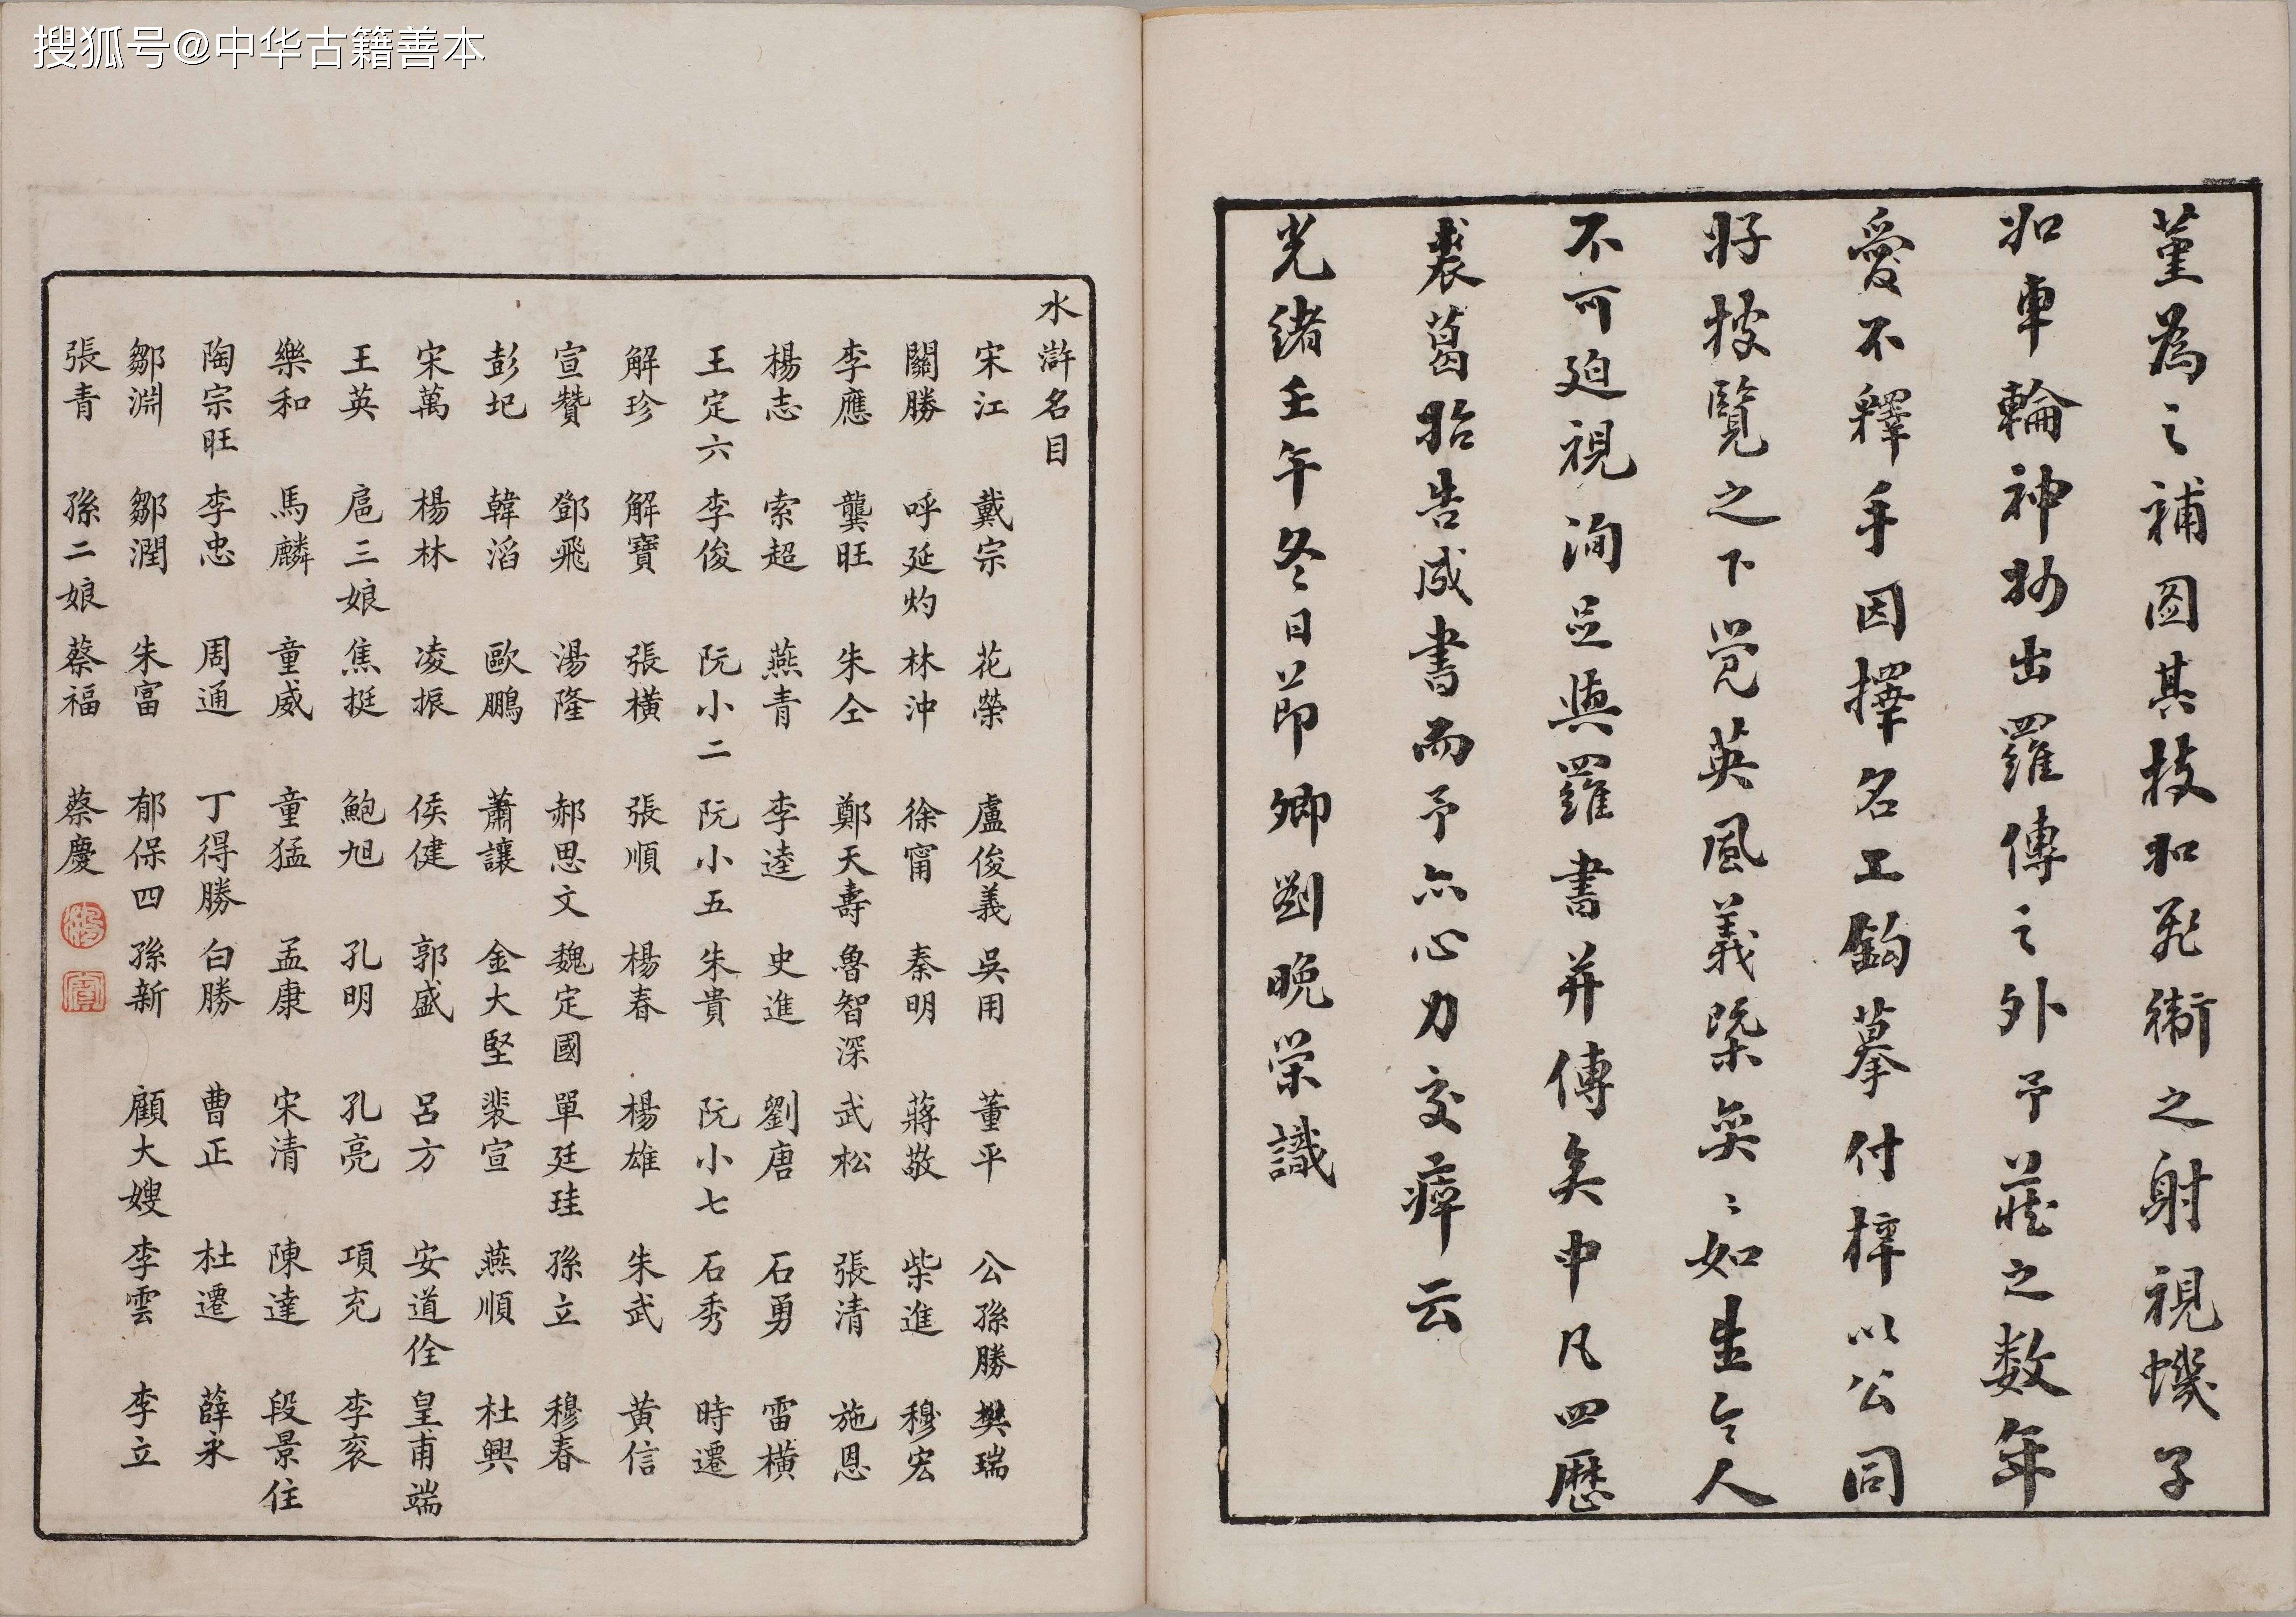 搜狐号@中华古籍善本
堇為之補圖其技如飛衛之射視蟣子
如車輪神妙出羅傳之外予莊之数年
愛不釋手因擇名工鈎摹付梓以公同
好披覽之下覚英風義槩奕〻如生令人
不可廹視洵足與羅書并傳矣中凡四歷
裘葛始告成書而予亦心力交瘁云
光緒壬午冬日節卿劉晚荣識
水滸名目
宋江 戴宗 花榮 盧俊義 吳用 董平 公孫勝 樊瑞
關勝 呼延灼 林沖 徐甯 秦明 蔣敬 柴進 穆宏
李應 龔旺 朱仝 鄭天壽 魯智深 武松 張清 施恩
楊志 索超 燕青 李逵 史進 劉唐 石勇 雷橫
王定六 李俊 阮小二 阮小五 朱貴 阮小七 石秀 時遷
解珍 解寶 張橫 張順 楊春 楊雄 朱武 黃信
宣贊 鄧飛 湯隆 郝思文 魏定國 單廷珪 孫立 穆春
彭玘 韓滔 歐鵬 蕭讓 金大堅 裴宣 燕順 杜興
宋萬 楊林 凌振 侯健 郭盛 呂方 安道佺 皇甫端
王英 扈三娘 焦挺 鮑旭 孔明 孔亮 項充 李衮
樂和 馬麟 童威 童猛 孟康 宋清 陳達 段景住
陶宗旺 李忠 周通 丁得勝 白勝 曹正 杜遷 薛永
鄒淵 鄒潤 朱富 郁保四 孫新 顧大嫂 李雲 李立
張青 孫二娘 蔡福 蔡慶